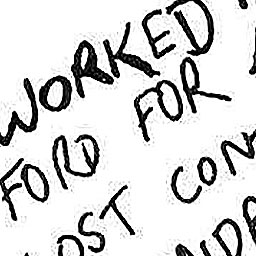 WORKED
FORD FOR
OST CON